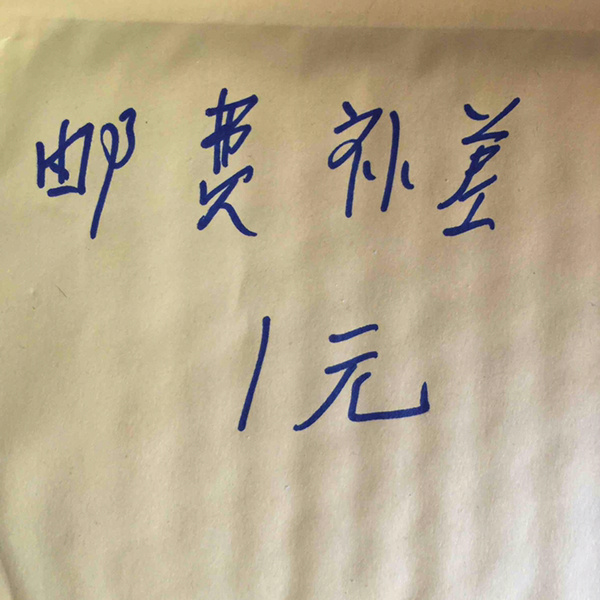 邮费补差
1元